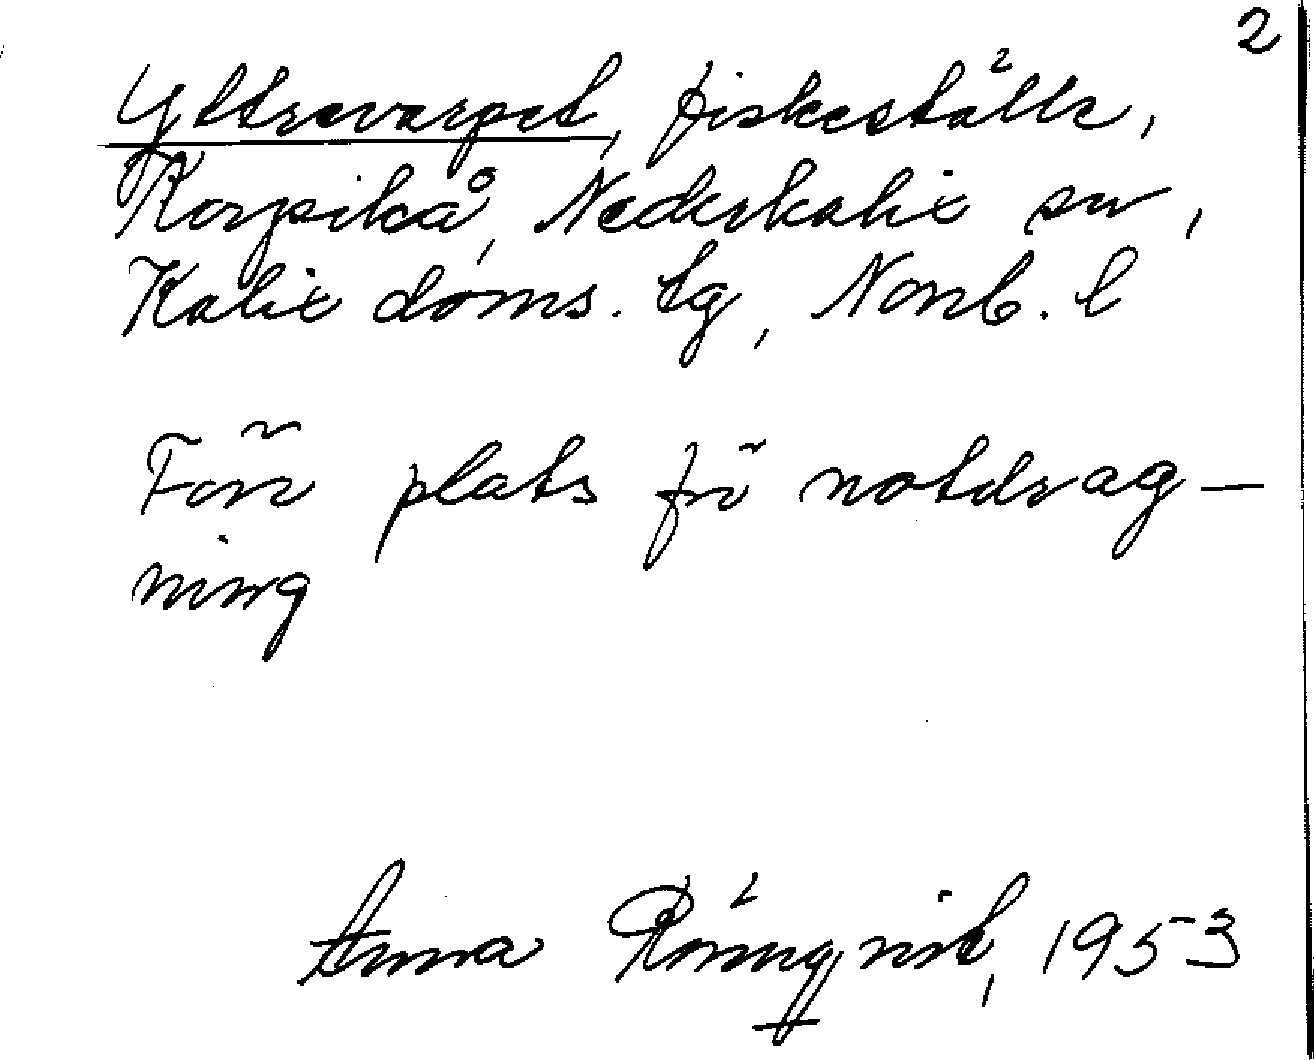 2
Yttrevarpet, fiskeställe,
Korpikå, Nederkalix sn,
Kalix doms. lg, Norrb. l
Förr plats för notdrag-
ning
Anna Rönnqvist, 1953